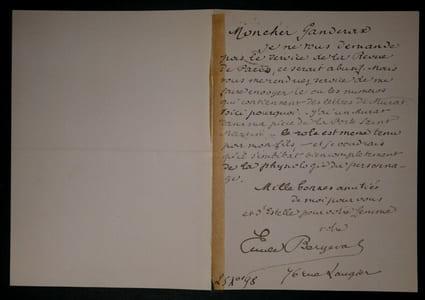 Mon cher Ganderax
je ne vous demande
pas le service de la Revue
de Paris, ce serait abusif. Mais
vous me rendriez service de me
faire envoyer le ou les numéros
qui contiennent des lettres de Murat
voici pourquoi. J'ai un Murat
dans ma pièce de la Porte Saint
Martin — le rôle est même tenu
par mon fils — et je voudrais
qu'il s'imbibât bien complètement
de la physiologie du personna-
ge.
Mille bonnes amitiés
de moi pour vous
et d'Estelle pour votre femme
votre
Emile Bergerat
25 98
76 rue Laugier